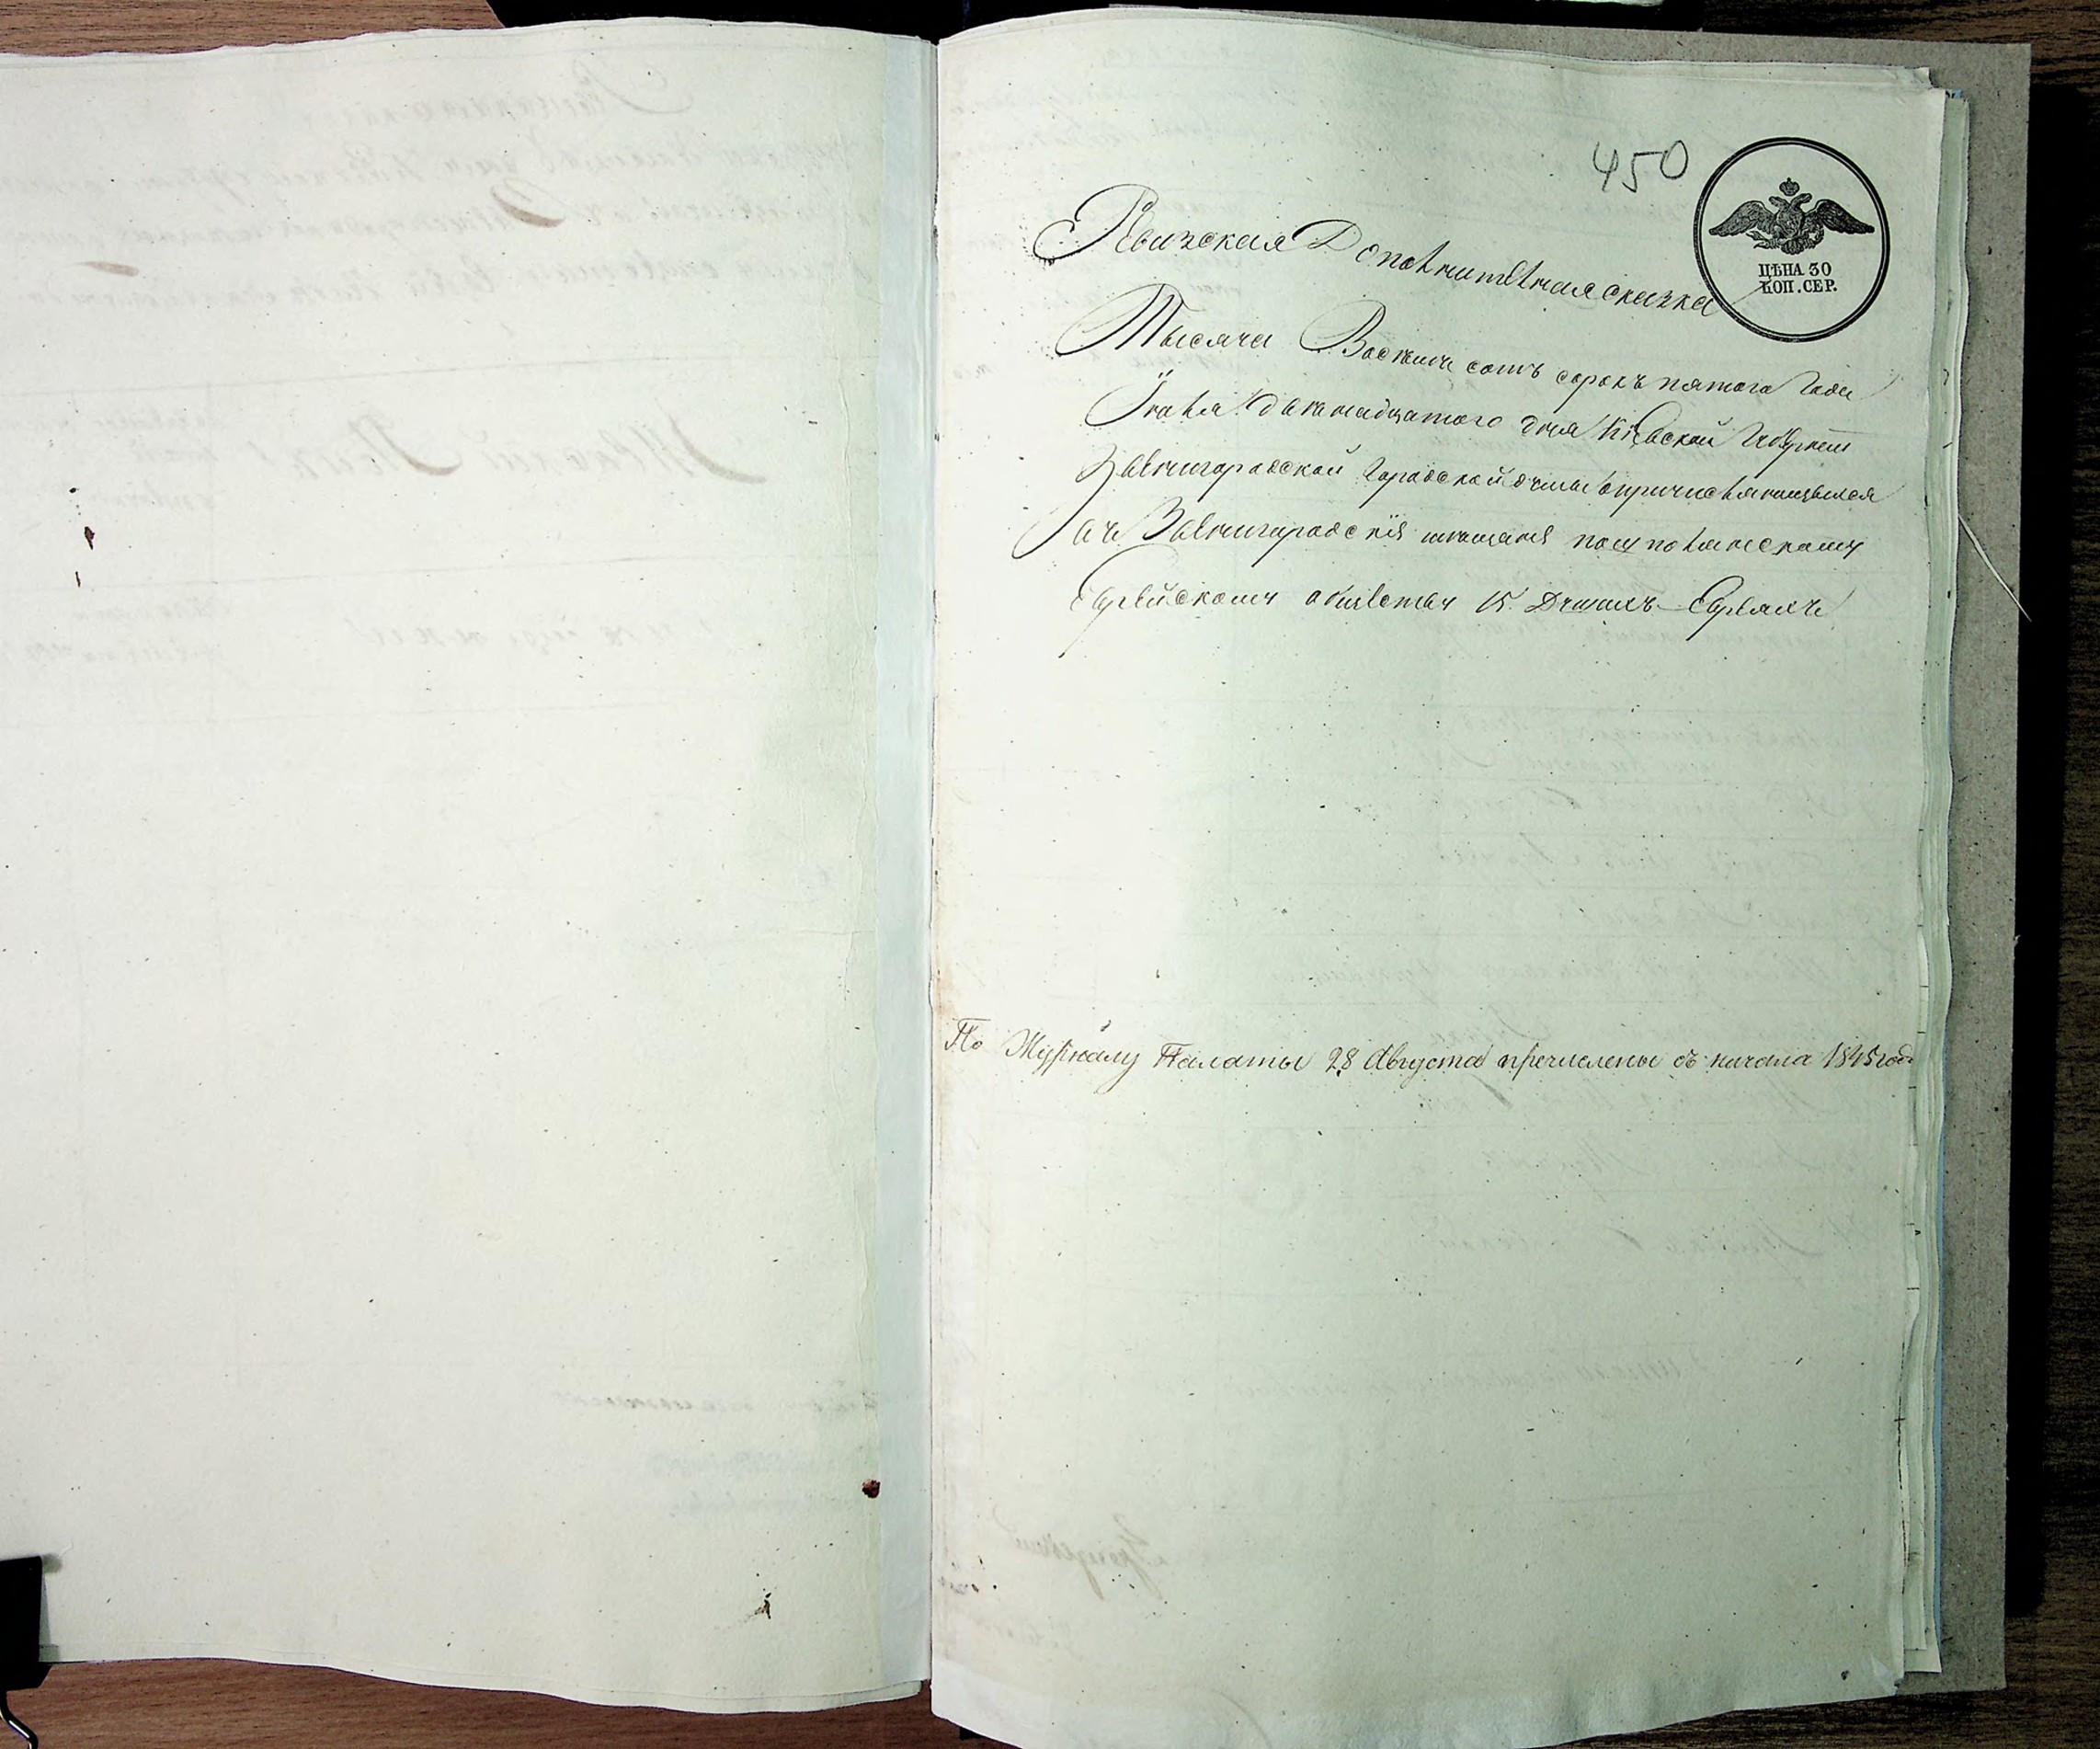 450
ЦѢНА 30
КОП. СЕР.
Ревизская Дополнителная сказка
Тысяча Восемь сотъ сорокъ пятого Года
Іюля дня Кіевской Губерніи
Звенигородской Городской думы о причисляющихся
въ Звенигородскіе мещане по
Еврейскому обществу 15 Душахъ Евреяхъ
По Журналу Палаты 28 Августа причислены съ начала 1845 года